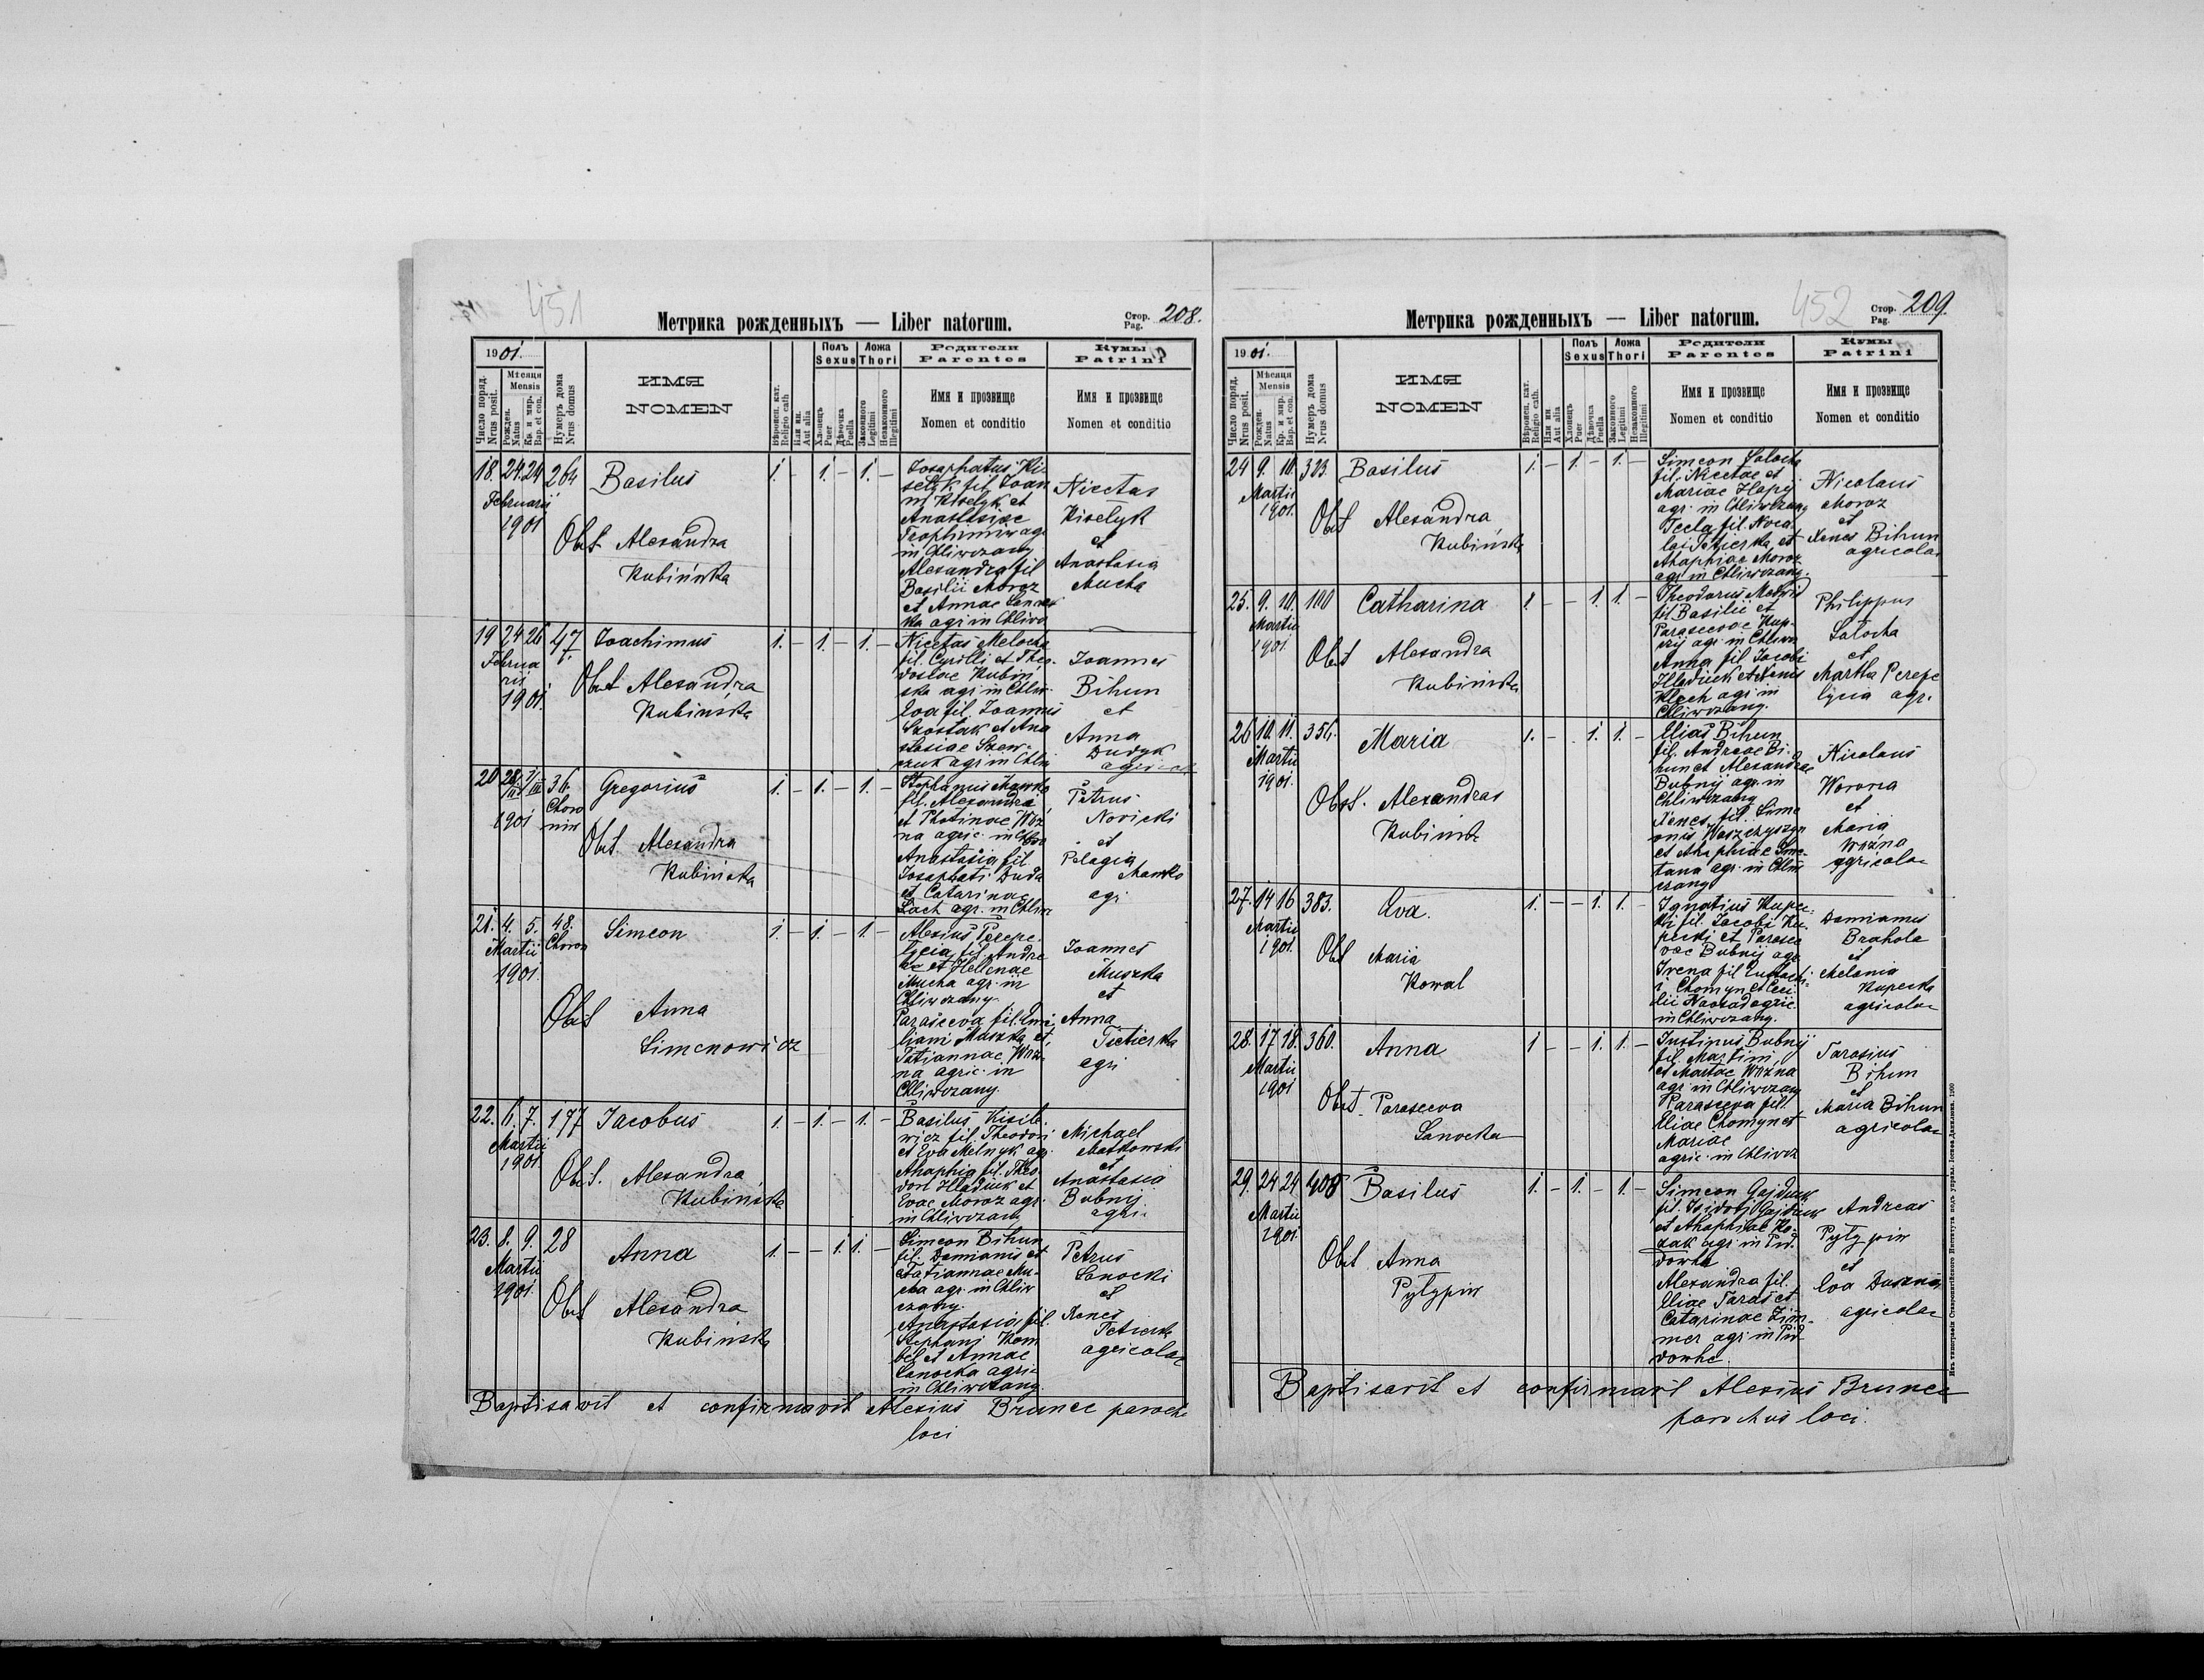 451
Метрика рожденныхъ — Liber natorum.
Стор. Pag. 208.
1901.
Число поряд. Nrus posit.
Мѣсяця Mensis
Рожден. Natus
Кр. и мир. Bap. et con.
Нумеръ дома Nrus domus
ИМЯ
NOMEN
Вѣроисп. кат. Religio cath
Или ин. Aut alia
Полъ Sexus
Хлопець Puer
Дѣвочка Puella
Ложа Thori
Законного Legitimi
Незаконного Illegitimi
Родители
Parentes
Имя и прозвище
Nomen et conditio
Кумы
Patrini
Имя и прозвище
Nomen et conditio
18. 24. 24 264 Basilus 1. – 1. – 1. –
Februarii
1901
Obst. Alexandra
Kubińska
Josaphatus Ki-
selyk fil. Joan
nis Kiselyk et
Anastasiae
agr
in Chliwczany
Alexandra fil
Basilii Moroz
et Annae
ka agr in Chliw
Nicetas
Kiselyk
et
Anastasia
Mucha
19 24 26 47. Joachimus 1. – 1. – 1. –
Februa
rii
1901.
Obst Alexandra
Kubinska
Nicetas Melocha
fil. Cyrilli et Theo-
dosiae Kubin
ska agr in Chliw
Eva fil. Joannis
Szostak et Ana
stasiae Szew-
czuk agr in Chliw
Joannes
Bihun
et
Anna
Dudyk
agricol
20 28/II 1/III 36. Gregorius 1. – 1. – 1. –
Choro
niw
1901
Obst. Alexandra
Kubińska
Stephanus Mamko
fil. Alexandri
et Photinae Woź
na agric. in
Anastasia fil
Josaphati Duda
et Catarinae
Lach agr. in Chliw
Petrus
Novicki
et
Pelagia
Mamko
agr
21. 4. 5. 48. Simeon 1. – 1. – 1. –
Choron
Martii
1901.
Obst Anna
Simenowicz
Alexius Perepe
lycia fil Andre
ae et Helenae
Mucha agr. in
Chliwczany
Parasceva fil.
liani Muszka et
Tatiannae Woź-
na agric. in
Chliwczany.
Joannes
Muszka
et
Anna
Tetierka
agri
22. 6. 7. 197 Jacobus 1. – 1. – 1. –
Martii
1901.
Obst. Alexandra
Kubińska
Basilus Kisile
wicz fil. Theodori
et Eva Melnyk agr
Ahaphia fil. Theo
dori Hladiuk et
Evae Moroz agr
in Chliwczany
Michael
Matkowski
et
Anastasia
Bubnij
agri.
23. 8. 9. 28 Anna 1. – – 1. 1. –
Martii
1901.
Obst Alexandra
Kubińska
Simeon Bihun
fil. Damianis et
Tatiannae Mu-
cha agr. in Chliw
czany.
Anastasia fil.
Stephani Kom
bel et Annae
Sanocka agri-
in Chliwczany.
Petrus
Sanocki
et
Xenes
Tetierka
agricolae
Baptisavit et confirmavit Alexius Brunec paroch
loci
452
Метрика рожденныхъ — Liber natorum.
Стор. Pag. 209.
1901.
Число поряд. Nrus posit.
Мѣсяця Mensis
Рожден. Natus
Кр. и мир. Bap. et con.
Нумеръ дома Nrus domus
ИМЯ
NOMEN
Вѣроисп. кат. Religio cath.
Или ин Aut alia
Полъ Sexus
Хлопець Puer
Дѣвочка Puella
Ложа Thori
Законного Legitimi
Незаконного Illegitimi
Родители
Parentes
Имя и прозвище
Nomen et conditio
Кумы
Patrini
Имя и прозвище
Nomen et conditio
24 9. 10. 323. Basilus 1. – 1. – 1. –
Martii
1901.
Obst Alexandra
Kubińska
Simeon Salocha
fil. Nicetae et
Mariae Hapij
agr. in Chliwczany
Tecla fil. Nico
lai Tetierka et
Ahaphiae Moroz
agr in Chliwczany.
Nicolaus
Moroz
et
Xenes Bihun
agricolae
25. 9. 10. 100 Catharina 1 – – 1. 1. –
Martii
1901.
Obst Alexandra
Kubińska
Theodorus
fil Basilii et
Parascevae Kup-
czij agr. in Chliwcz
Anna fil Jacobi
Hladiuk et Xenis
Klech agr in
Chliwczany.
Philippus
Salocha
et
Martha Perepe
lycia agr.
26 10. 11. 356. Maria 1. – 1. 1. –
Martii
1901.
Obst. Alexandra
Kubińska
Elias Bihun
fil. Andreae Bi-
hun et Alexandrae
Bubnij agr. in
Chliwczany
Xenes fil. Sime
onis Waszczyszyn
et Ahaphiae Sme-
tana agr. in Chliw
czany
Nicolaus
Worona
et
Maria
Woźna
agricolae
27. 14 16 383. Eva. 1. – – 1. 1. –
Martii
1901.
Obst Maria
Kowal
Ignatius Kupec-
ki fil. Jacobi Ku
pecki et Parasce
vae Bubnij agr
Irena fil Eustachi-
i Chomyn et Ceci
lii agric.
in Chliwczany.
Damianus
Brahola
et
Melania
Kupecka
agricolae
28. 17 18. 360. Anna 1 – – 1. 1. –
Martii
1901
Obst. Parasceva
Sanocka
Justinus Bubnij
fil. Martini
et Martae Woźna
agr. in Chliwczany
Parasceva fil.
Eliae Chomyn et
Mariae
agric. in Chliwcz
Tarasius
Bihun
et
Maria Bihun
agricolae
29. 24 24 408 Basilus 1. – 1. – 1. –
Martii
1901.
Obst Anna
Pyłypiw
Simeon Gajduk
fil. Isidori Gajduk
et Ahaphiae Ko-
zak agr in Pid
dowhe
Alexandra fil.
Eliae Taras et
Catarinae Zim-
mer agr in Pid-
dowhe.
Andreas
Pyłypiw
et
Eva
agricolae
Baptisavit et confirmavit Alexius Brunec
parochus loci.
Изъ типографіи Ставропигійского Института подъ управл. Іосифа Данилюка. 1900